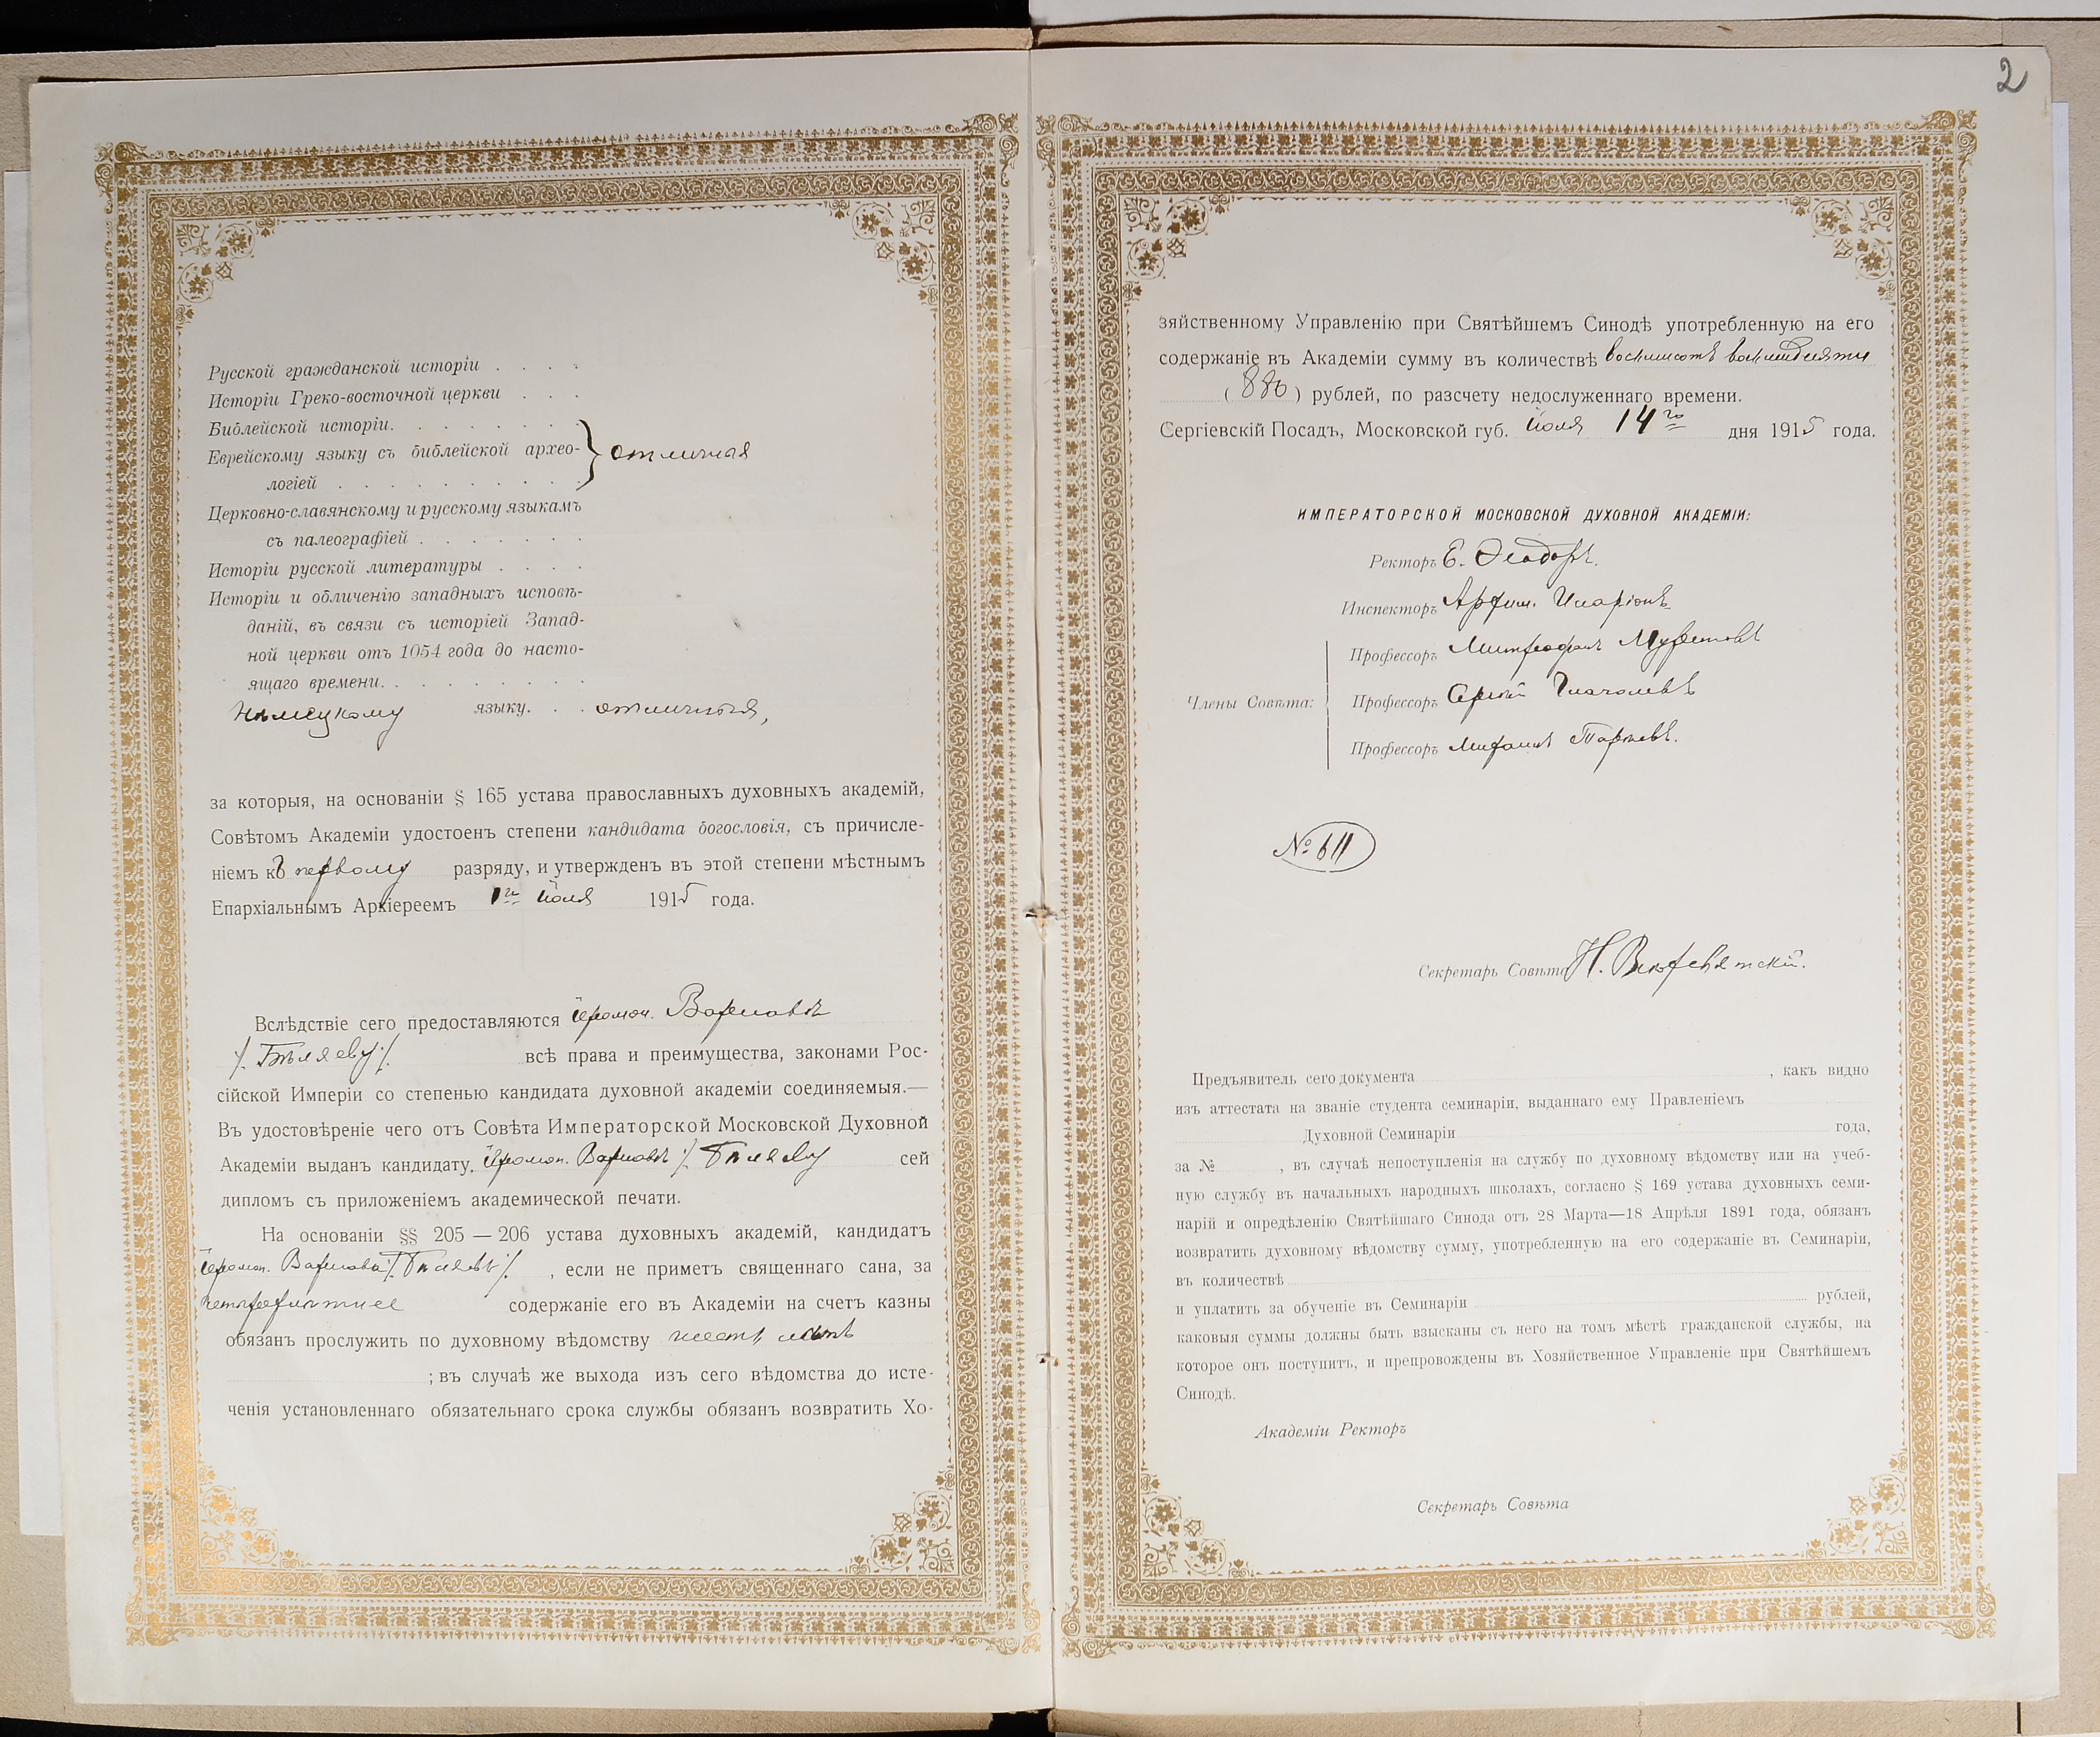 2
Русской гражданской исторіи . . . .
Исторіи Греко-восточной церкви . . .
Библейской исторіи. . . . . . . .
Еврейскому языку съ библейской архео- } отличная
логіей . . . . . . . . . .
Церковно-славянскому и русскому языкамъ
съ палеографіей . . . . . . .
Исторіи русской литературы . . . .
Исторіи и обличенію западныхъ исповѣ-
даній, въ связи съ исторіей Запад-
ной церкви отъ 1054 года до насто-
ящаго времени. . . . . . . . .
Нѣмецкому языку. . . отличная,
за которыя, на основаніи § 165 устава православныхъ духовныхъ академій,
Совѣтомъ Академіи удостоенъ степени кандидата богословія, съ причисле-
ніемъ къ первому разряду, и утвержденъ въ этой степени мѣстнымъ
Епархіальнымъ Архіереемъ 1го іюля 1915 года.
Вслѣдствіе сего предоставляются іеромон. Варнавѣ
/. Бѣляеву ./. всѣ права и преимущества, законами Рос-
сійской Имперіи со степенью кандидата духовной академіи соединяемыя.—
Въ удостовѣреніе чего отъ Совѣта Императорской Московской Духовной
Академіи выданъ кандидату, іеромон. Варнавѣ /. Бѣляеву сей
дипломъ съ приложеніемъ академической печати.
На основаніи §§ 205 — 206 устава духовныхъ академій, кандидатъ
іеромон. Варнава /. Бѣляевъ ./. , если не приметъ священнаго сана, за
четырехлѣтнее содержаніе его въ Академіи на счетъ казны
обязанъ прослужить по духовному вѣдомству шесть лѣтъ
; въ случаѣ же выхода изъ сего вѣдомства до исте-
ченія установленнаго обязательнаго срока службы обязанъ возвратить Хо-
зяйственному Управленію при Святѣйшемъ Синодѣ употребленную на его
содержаніе въ Академіи сумму въ количествѣ восьмисотъ восьмидесяти
( 880 ) рублей, по разсчету недослуженнаго времени.
Сергіевскій Посадъ, Московской губ. Іюля 14го дня 1915 года.
ИМПЕРАТОРСКОЙ МОСКОВСКОЙ ДУХОВНОЙ АКАДЕМІИ:
Ректоръ Е. Ѳеодоръ.
Инспекторъ Архим. Иларіонъ
Профессоръ Митрофанъ Муретовъ
Члены Совѣта: Профессоръ Сергѣй Глаголевъ
Профессоръ Михаилъ Тарѣевъ.
№ 611
Секретарь Совѣта Н. Всехсвятскій.
Предъявитель сего документа , какъ видно
изъ аттестата на званіе студента семинаріи, выданнаго ему Правленіемъ
Духовной Семинаріи года,
за № , въ случаѣ непоступленія на службу по духовному вѣдомству или на учеб-
ную службу въ начальныхъ народныхъ школахъ, согласно § 169 устава духовныхъ семи-
нарій и опредѣленію Святѣйшаго Синода отъ 28 Марта—18 Апрѣля 1891 года, обязанъ
возвратить духовному вѣдомству сумму, употребленную на его содержаніе въ Семинаріи,
въ количествѣ
и уплатить за обученіе въ Семинаріи рублей,
каковыя суммы должны быть взысканы съ него на томъ мѣстѣ гражданской службы, на
которое онъ поступитъ, и препровождены въ Хозяйственное Управленіе при Святѣйшемъ
Синодѣ.
Академіи Ректоръ
Секретарь Совѣта